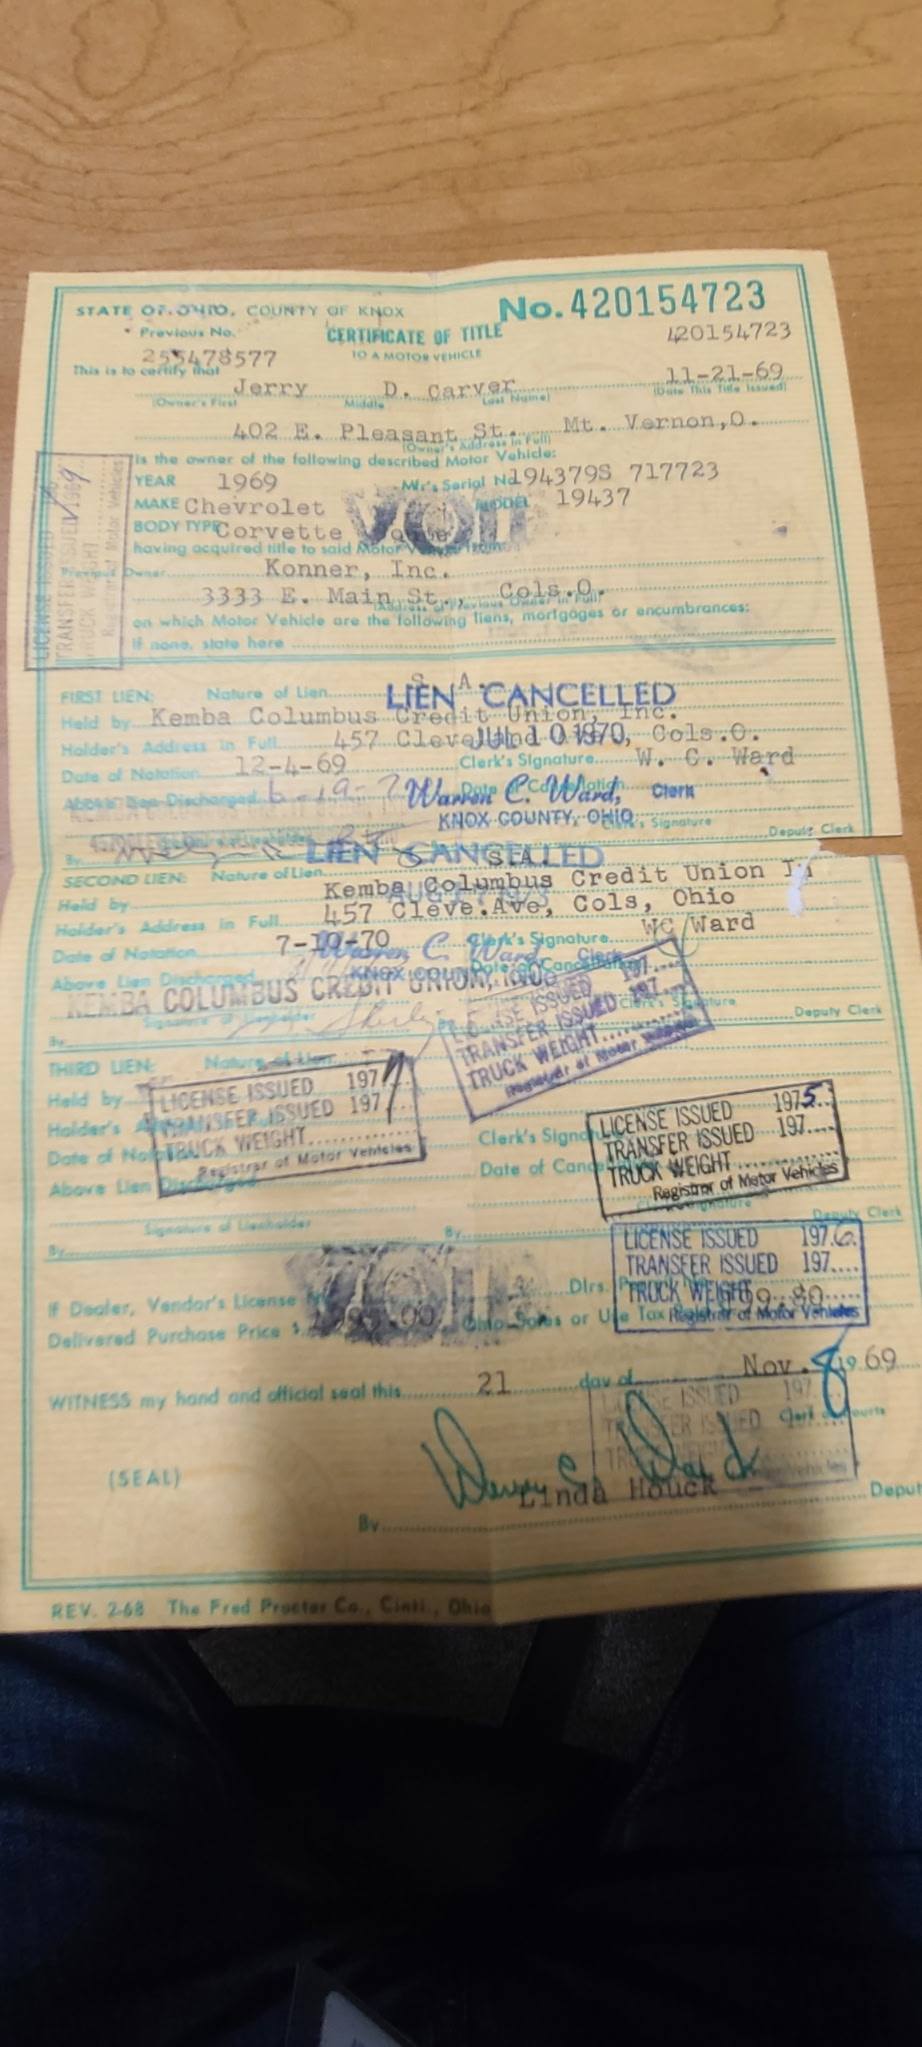 No. 420154723
STATE OF OHIO, COUNTY OF KNOX
Previous No. CERTIFICATE OF TITLE 420154723
255478577 TO A MOTOR VEHICLE
This is to certify that 11-21-69
Jerry D. Carver (Date This Title Issued)
(Owner's First Middle Last Name)
402 E. Pleasant St. Mt. Vernon,O.
(Owner's Address in Full)
is the owner of the following described Motor Vehicle:
YEAR 1969 Mfr's Serial No 194379S 717723
MAKE Chevrolet MODEL 19437
BODY TYPE Corvette
VOID
having acquired title to said Motor Vehicle from
Previous Owner Konner, Inc.
3333 E. Main St., Cols.O.
(Address of Previous Owner in Full)
on which Motor Vehicle are the following liens, mortgages or encumbrances:
If none, state here
LICENSE ISSUED
TRANSFER ISSUED 1969
TRUCK WEIGHT
Registrar of Motor Vehicles
S. A.
FIRST LIEN: Nature of Lien LIEN CANCELLED
Held by Kemba Columbus Credit Union, Inc.
Holder's Address in Full 457 Cleveland Cols.O.
JUL 10 1970
Date of Notation 12-4-69 Clerk's Signature W. C. Ward
Above Lien Discharged Date of Cancellation
Warren C. Ward, Clerk
KNOX COUNTY, OHIO Clerk's Signature
Deputy Clerk
By
LIEN CANCELLED
SECOND LIEN: Nature of Lien
Held by Kemba Columbus Credit Union
Holder's Address in Full 457 Cleve.Ave, Cols, Ohio
Date of Notation 7-10-70 Clerk's Signature WC Ward
Warren C. Ward Clerk
Above Lien Discharged Date of Cancellation
KNOX COUNTY,
KEMBA COLUMBUS CREDIT UNION, INC.
Signature of Lienholder Clerk's Signature
By By Deputy Clerk
LICENSE ISSUED 197
TRANSFER ISSUED 197
TRUCK WEIGHT
Registrar of Motor Vehicles
THIRD LIEN: Nature of Lien
Held by
Holder's
Date of Clerk's
Above Lien Discharged Date of
LICENSE ISSUED 197
TRANSFER ISSUED 197
TRUCK WEIGHT
Registrar of Motor Vehicles
LICENSE ISSUED 1975
TRANSFER ISSUED 197
TRUCK WEIGHT
Registrar of Motor Vehicles
Signature of Lienholder Deputy Clerk
By By
LICENSE ISSUED 1976
TRANSFER ISSUED 197
TRUCK WEIGHT
Registrar of Motor Vehicles
VOID
If Dealer, Vendor's License Dlrs.
Delivered Purchase Price $ Ohio Sales or Use Tax
WITNESS my hand and official seal this 21 day of Nov. 1969
LICENSE ISSUED 197
TRANSFER ISSUED
Clerk of Courts
(SEAL) Warren C. Ward
Linda Houck
By Deput
REV. 2-68 The Fred Procter Co., Cinti., Ohio